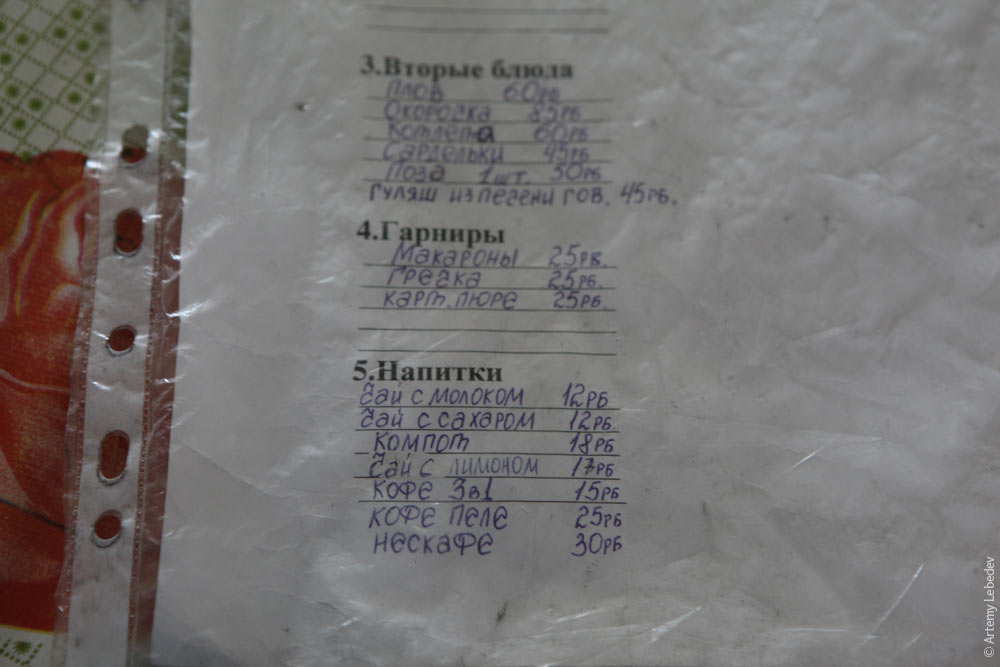 3.Вторые блюда
Плов 60рб
Окорочка 85рб
Котлета 60рб
Сардельки 45рб
Поза 1шт. 30рб
гуляш из печени гов. 45рб.
4.Гарниры
Макароны 25рв.
Гречка 25рб.
карт. пюре 25рб.
5.Напитки
чай с молоком 12рб
чай с сахаром 12рб
компот 18рб
чай с лимоном 17рб
кофе 3в1 15рб
кофе пеле 25рб
нескафе 30рб
© Artemy Lebedev